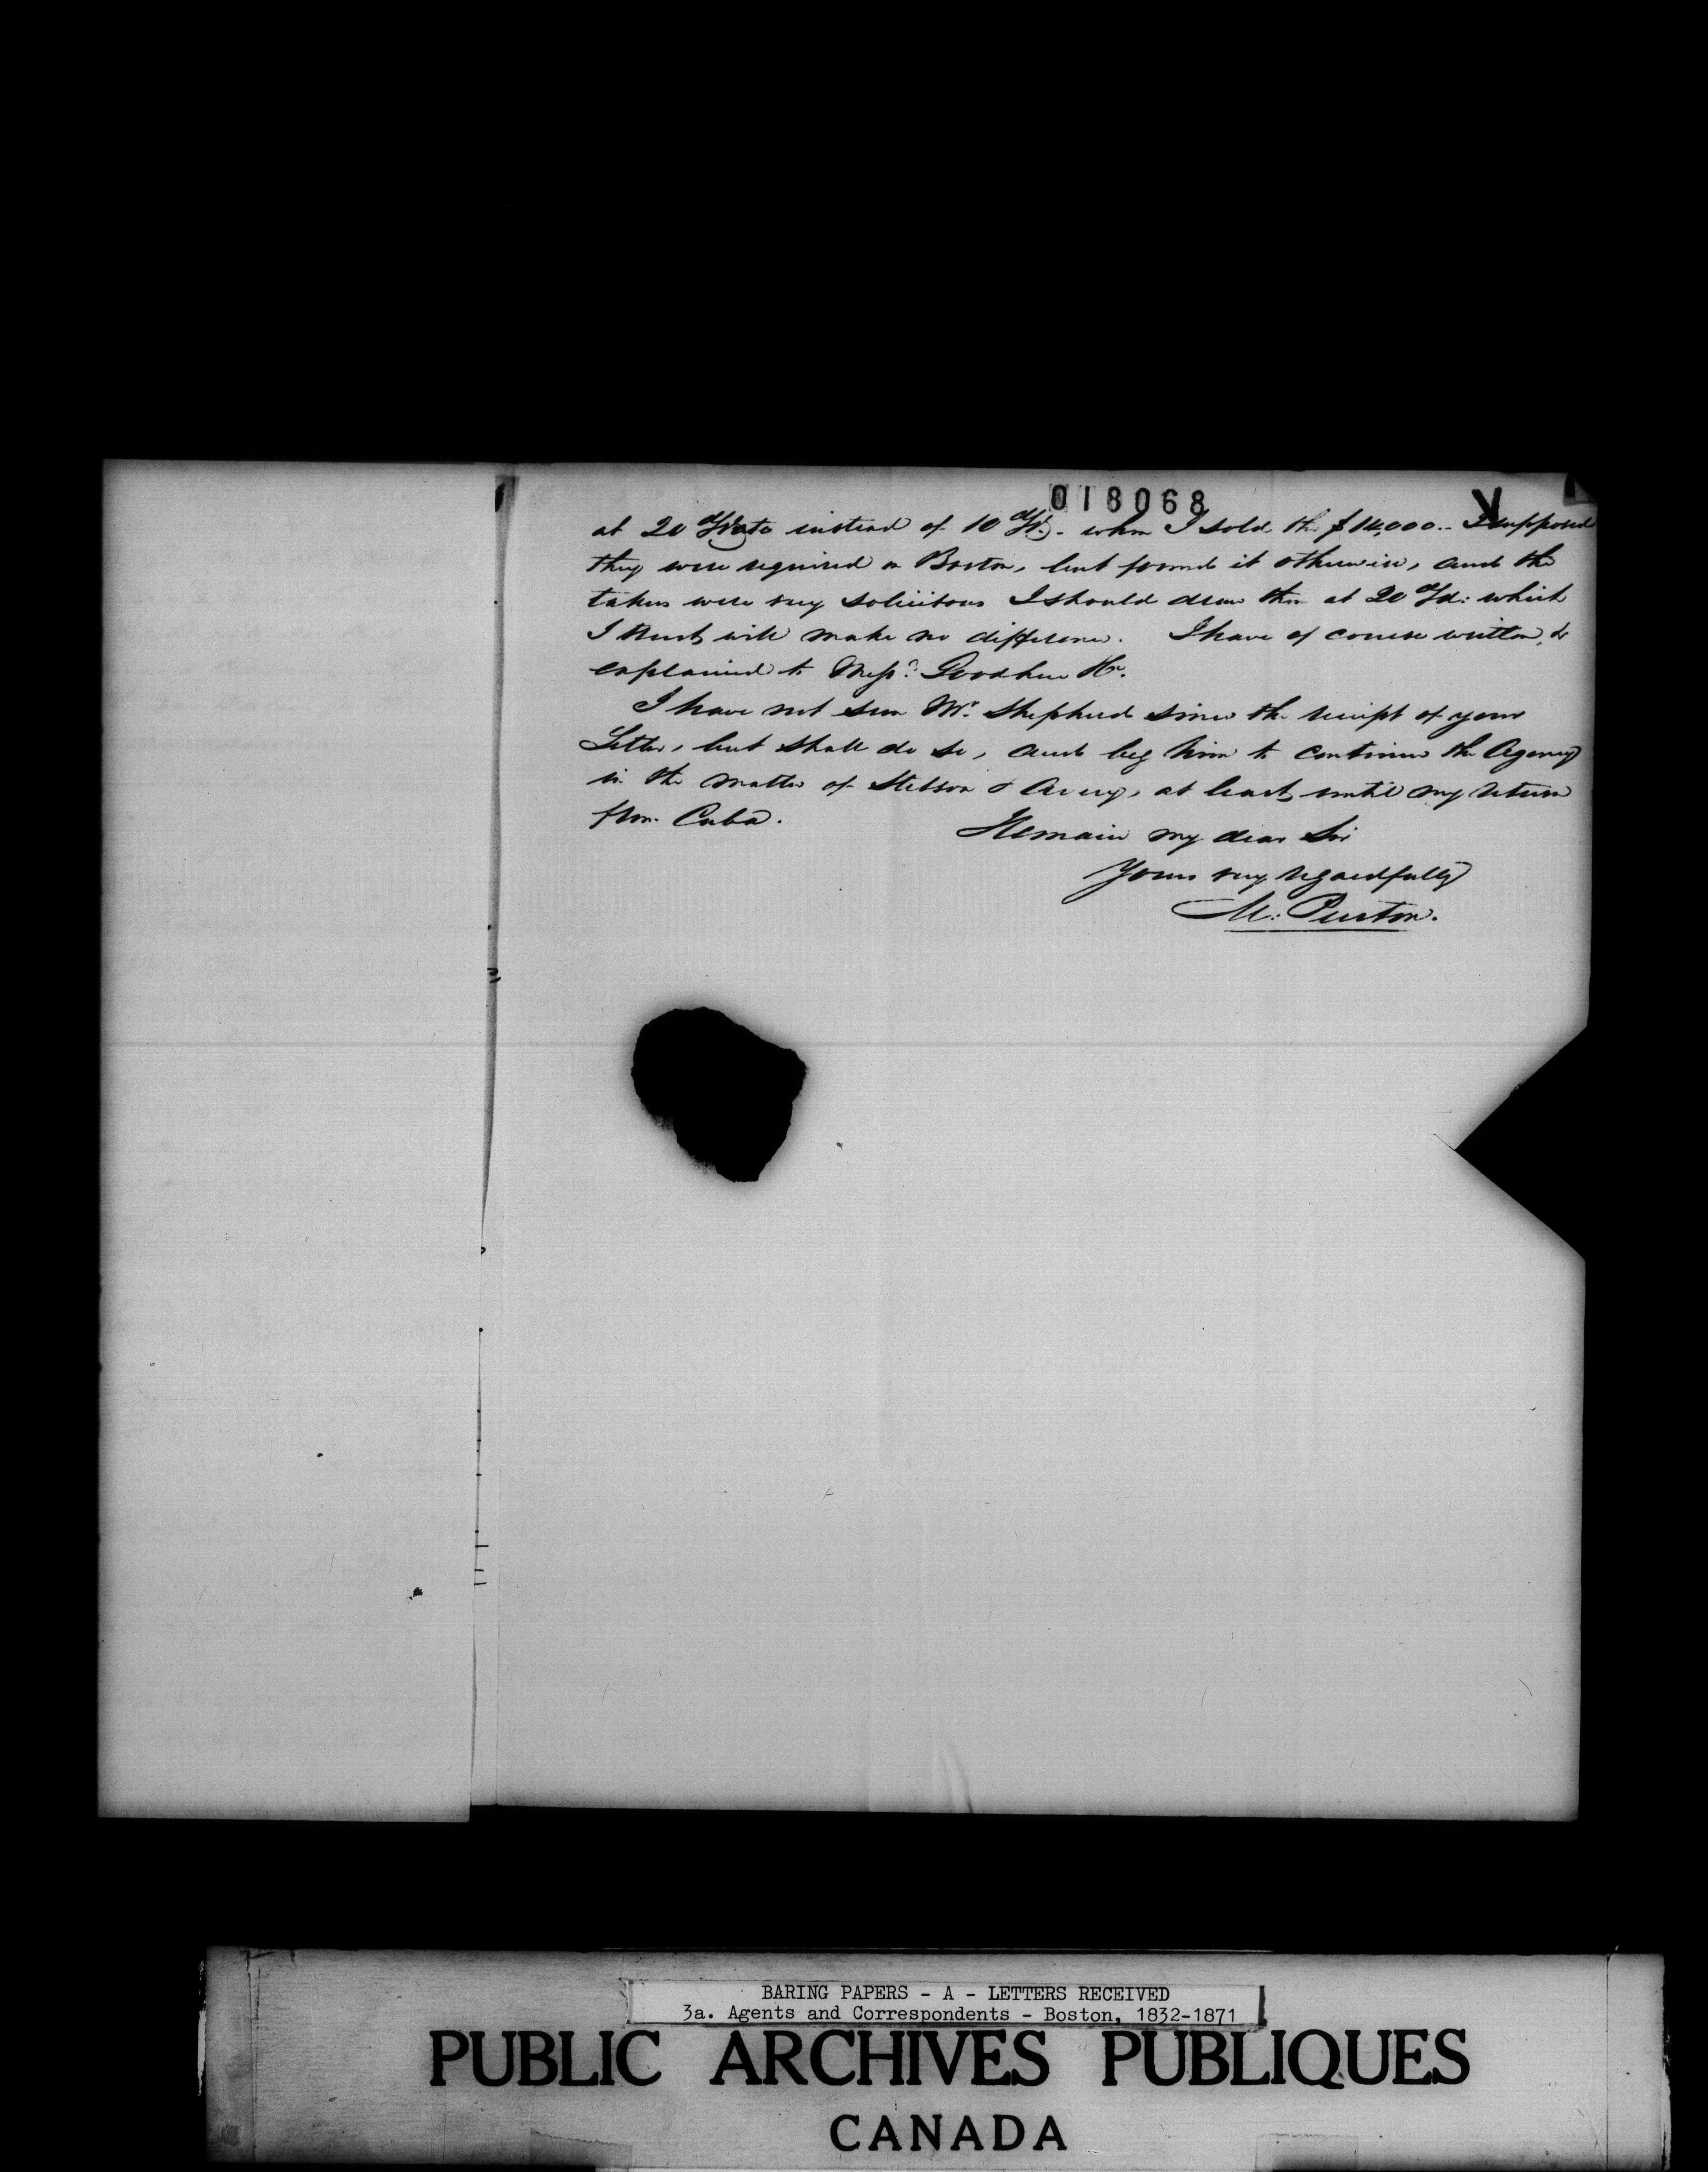 018068
at 20 d/date instead of 10 d/d. - when I sold the $14,000 .- I supposed
they were required in Boston, but found it otherwise, and the
takers were very solicitous I should draw them at 20 d/d: which
I trust will make no difference. I have of course written, &
explained to Messrs. Goodhue & Co.
I have not seen Mr. Shepherd since the receipt of your
Letter, but shall do so, and beg him to continue the Agency
in the matter of Stetson & Avery, at least, until my return
from Cuba.
I remain my dear Sir
Yours very regardfully
BARING PAPERS - A - LETTERS RECEIVED
3a. Agents and Correspondents - Boston, 1832-1871
PUBLIC ARCHIVES PUBLIQUES
CANADA